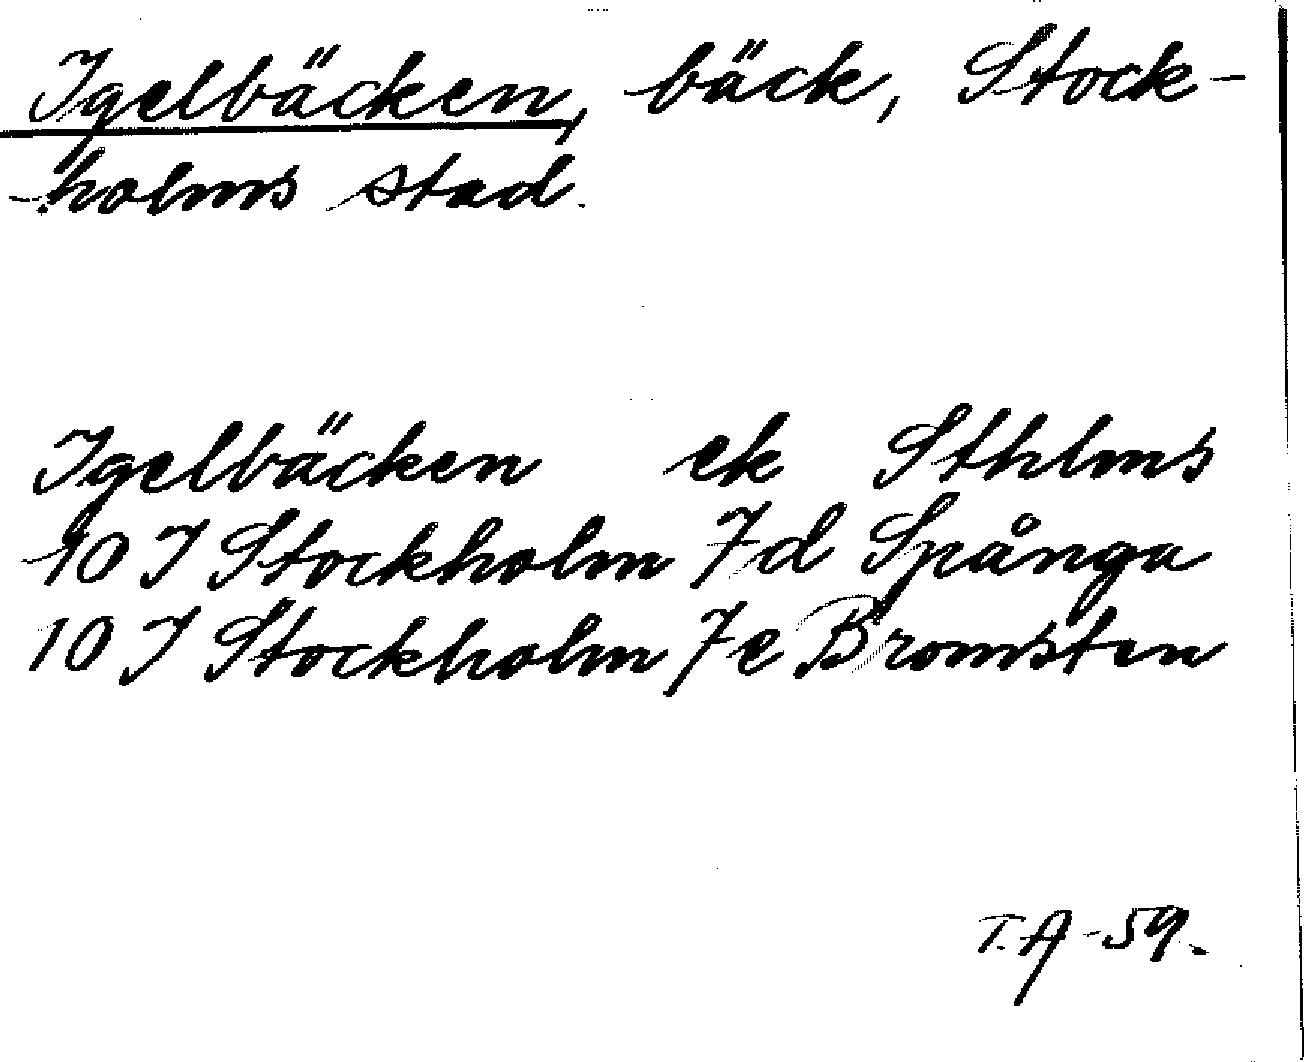 Igelbäcken, bäck, Stock-
holms stad.
Igelbäcken ek Sthlms
10 I Stockholm 7d Spånga
10 I Stockholm 7e Bromsten
T.A -59.